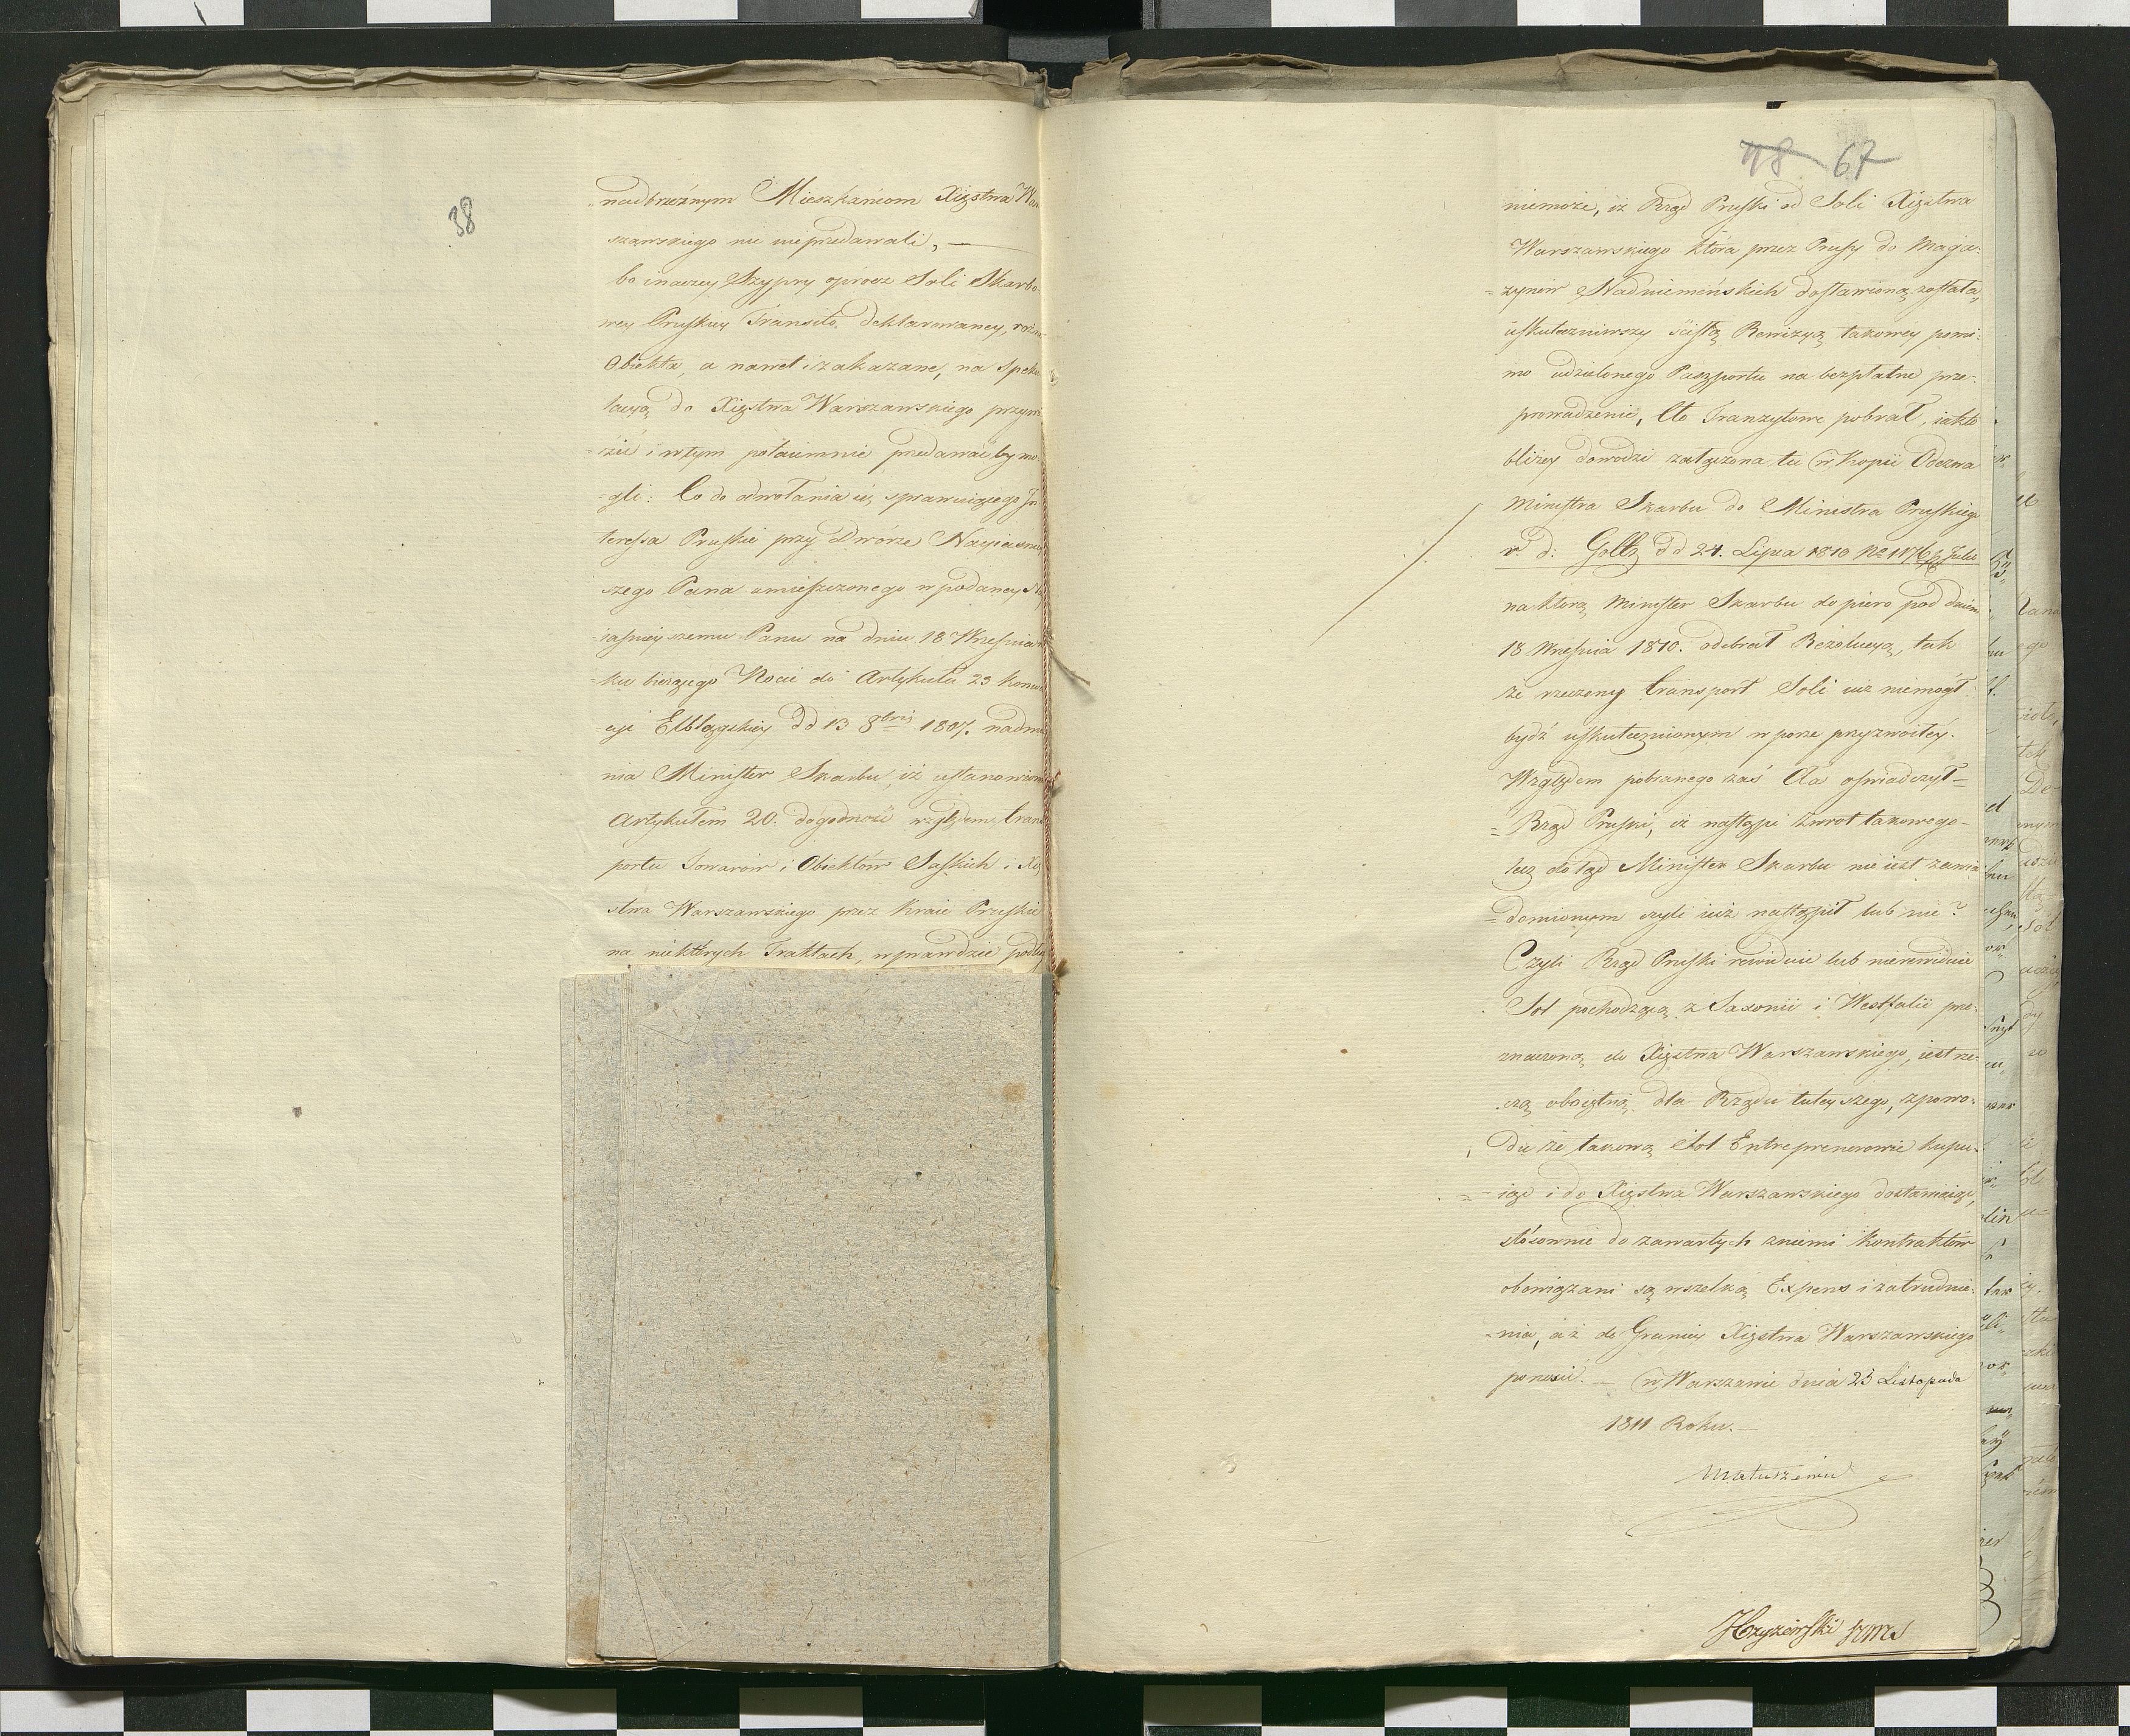 38
nadbrzeżnym Mieszkańcom Xięstwa War
szawskiego nie uieprzedawali, —
bo inaczey Szypry oprócz Soli Skarbo-
wey Pruskiey Transito deklarowaney, różne
Obiekta, a nawet i zakazane, na speku
lacyą do Xięstwa Warszawskiego przywo
zić i w tym potaiemnie przedawać by mo-
gli: Co do odwołania się sprawuiącego In
teressa Pruskie przy Dworze Nayiaśniey
szego Pana umieszczonego w podaney Nay
iaśnieyszemu Panu na dniu 18 Września
ku bieżącego Nocie do Artykułu 23 Konwen
cyi Elblągskiey dd 13 8bris 1807. nadmie
nia Minister Skarbu, iż ustanowione
Artykułem 20. dogodności względem trans
portu Towarów i Obiektów Saskich i Xię
stwa Warszawskiego przez Kraie Pruskie
na niektórych Traktach, wprawdzie podleg
48 67
niemoże, iż Rząd Pruski od Soli Xięstwa
Warszawskiego która przez Prusy do Maga-
zynów Nadniemeńskich dostawioną została,
uskuteczniwszy ścisłą Rewizyą takowey pomi-
mo udzielonego Paszportu na bezpłatne prze-
prowadzenie, Cło Tranzytowe pobrał, iak to
bliżey dowodzi załączona tu w Kopii Odezwa
Ministra Skarbu do Ministra Pruskiego
v d: Goltz dd 24. Lipca 1810 No 1176
na którą Minister Skarbu dopiero pod dniem
18 Września 1810. odebrał Rezolucyą, tak
że rzeczony transport Soli iuż niemógł
bydź uskutecznionym w porze przyzwoitey.
Względem pobranego zaś Cła oświadczył
Rząd Pruski, iż nastąpi zwrot takowego
lecz dotąd Minister Skarbu nie iest zawia
domionym czyli iuż nastąpił lub nie?
Czyli Rząd Pruski rewiduie lub nierewiduie
Sol pochodzącą z Saxonii i Westfalii prze-
znaczoną do Xięstwa Warszawskiego, iest rze-
czą oboiętną dla Rządu tuteyszego, z powo-
du że takową Sol Entreprenerowie kupu-
iąc i do Xięstwa Warszawskiego dostawiaiąc,
stósownie do zawartych z niemi Kontraktów
obowiązani są wszelką Expens i zatrudnie-
nia, aż do Granicy Xięstwa Warszawskiego
ponosić. — w Warszawie dnia 23 Listopada
1811 Roku. —
Matuszewic